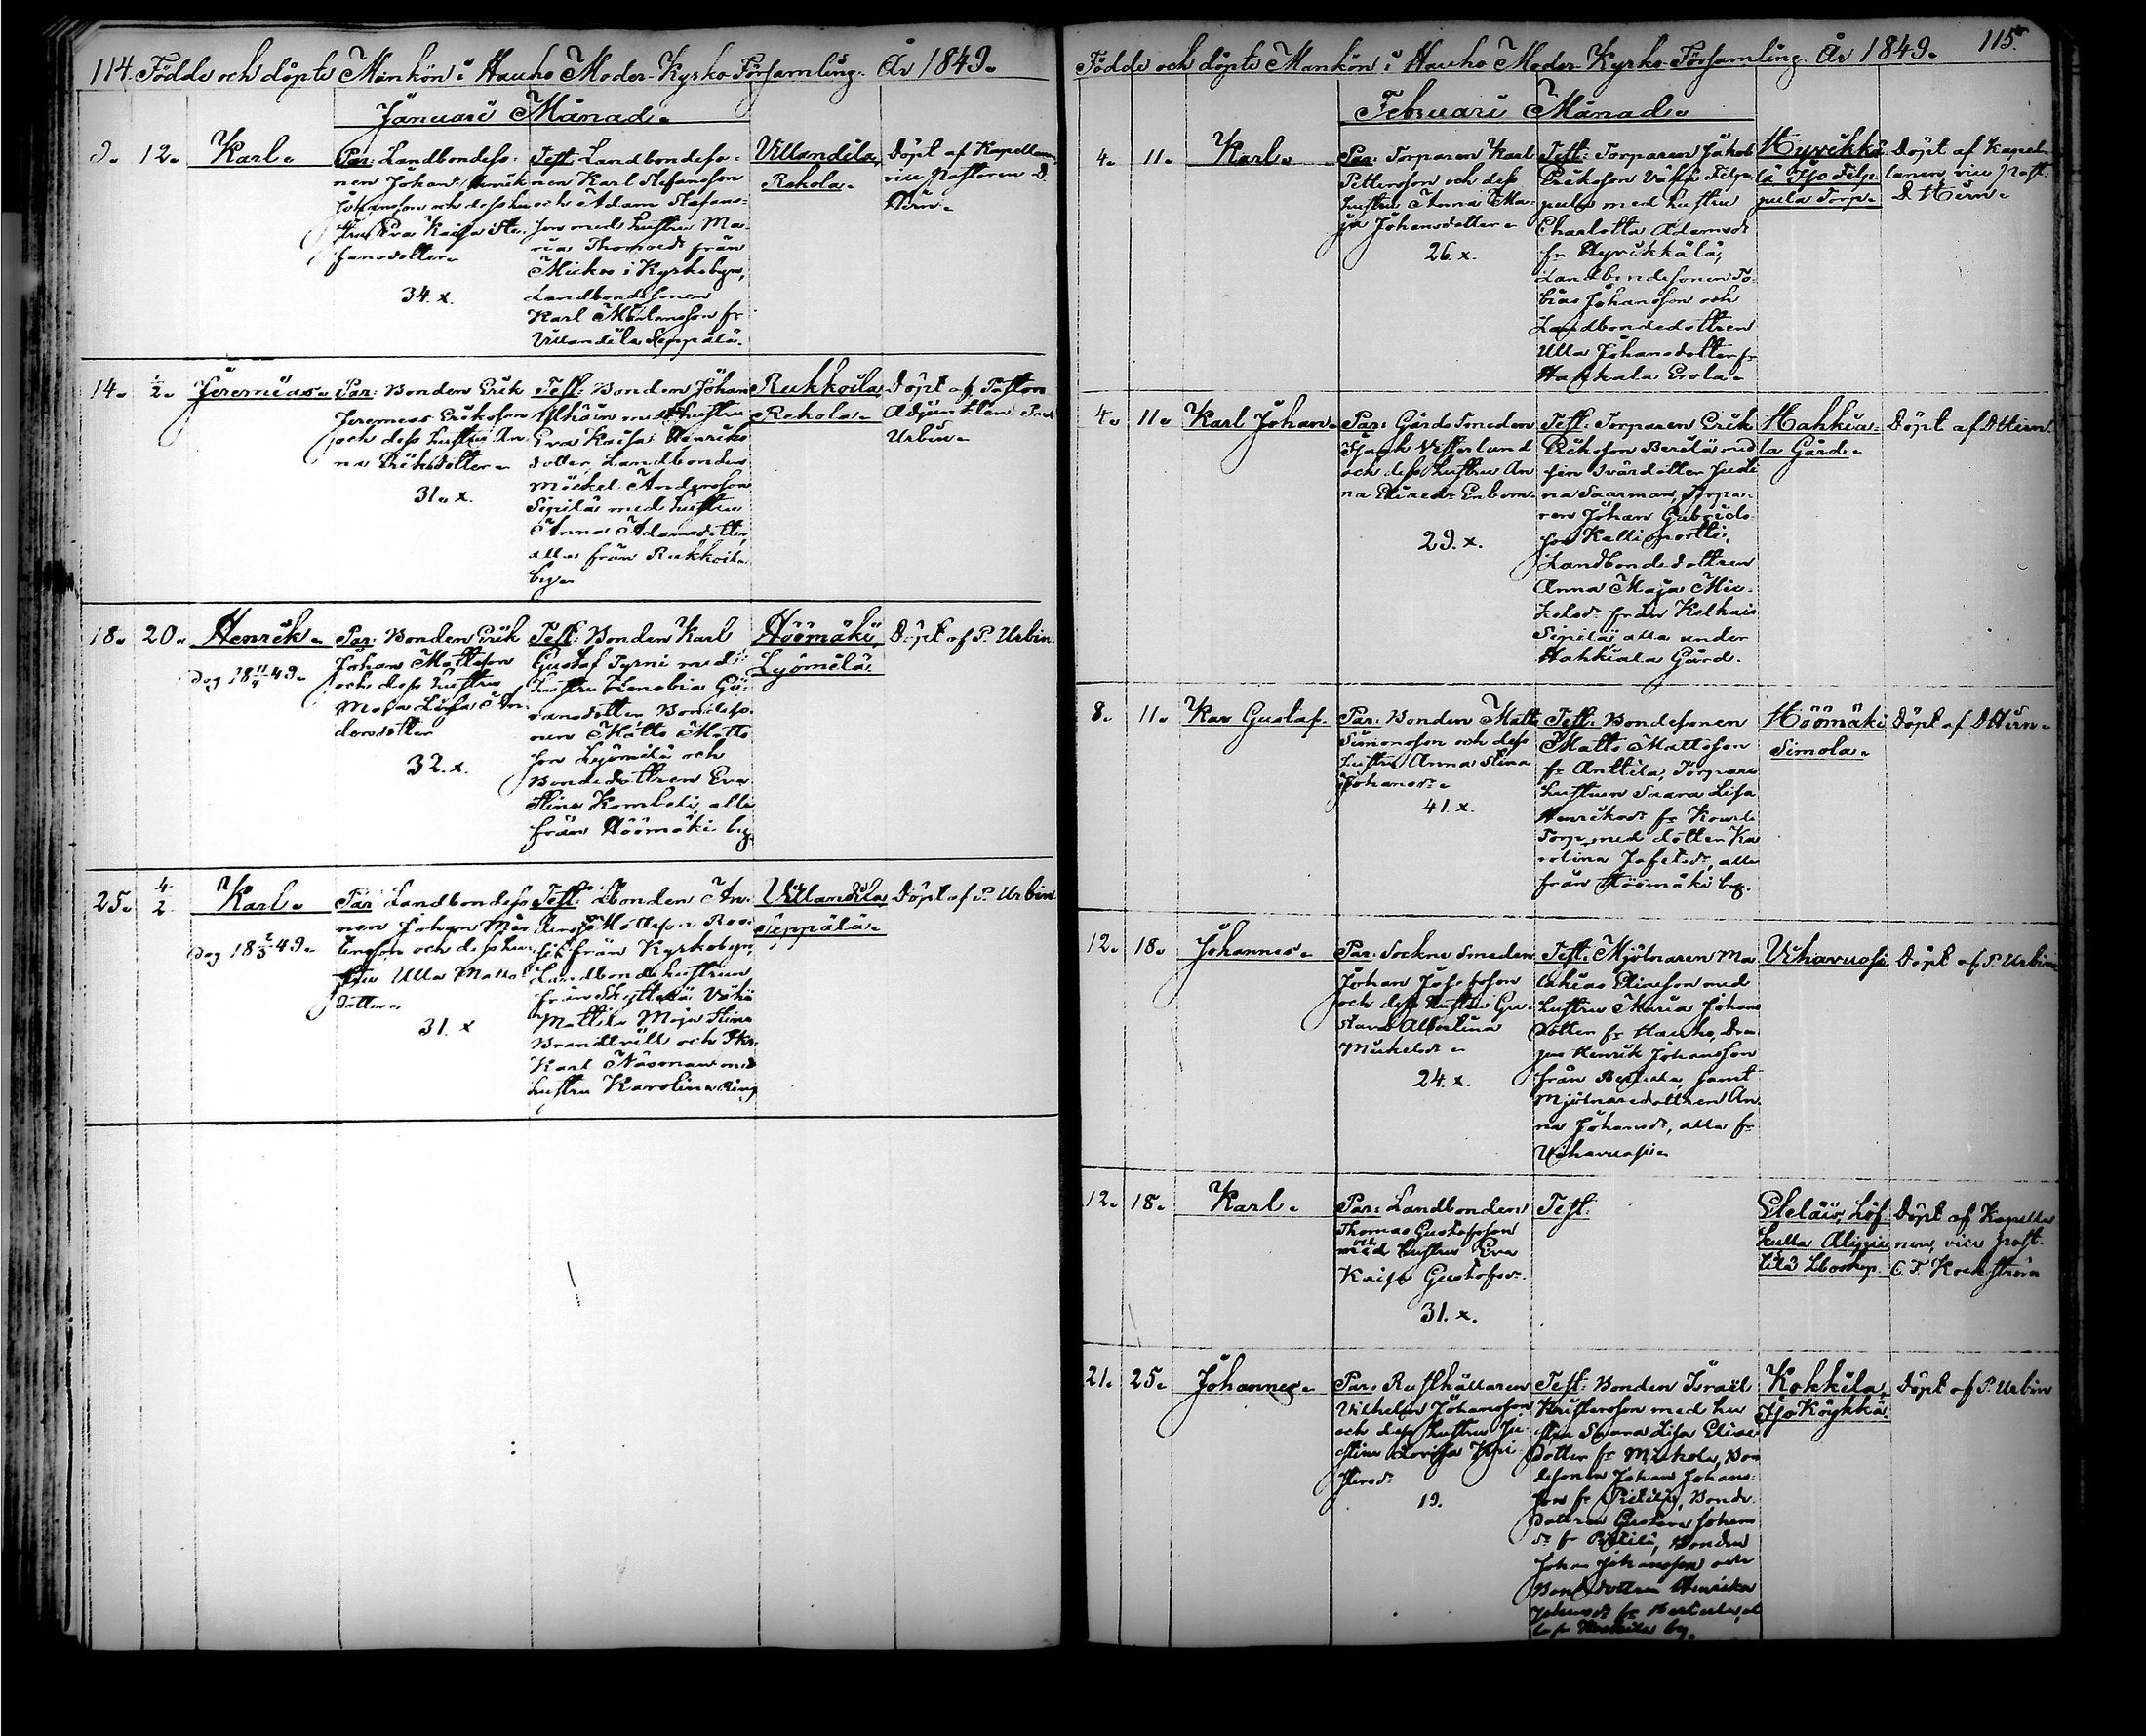 114. Födde och döpte Mankön i Hauho Moder-Kyrko Församling. År 1849.
Januari Månad.
9. 12. Karl.
Par: Landbondeso-
nen Johan Henrik
Johansson och dess hu-
stru Eva Kaisa Ste-
fansdotter.
34. x.
Test: Landbondeso-
nen Karl Stefansson
och Adam Stefans-
son med hustru Ma-
ria Thomasdr från
Mickos i Kyrkobyn,
Landbondesonen
Karl Mårtensson fr
Villandila Seppälä.
Villandila,
Rekola.
Döpt af Kapellan,
vice Pastoren D.
Hirn.
14. ½. Jeremias.
Par: Bonden Erik
Jeremias Eriksson
och dess hustru An-
na Eriksdotter.
31. x.
Test: Bonden Johan
med hustru
Eva Kaisa Henriks
dotter, Landbonden
Mickel Andersson
Sipilä med hustru
Anna Adamsdotter,
alla från Rukkoila
by.
Rukkoila,
Rekola.
Döpt af Pastors
Adjunkten
Urbin.
18. 20. Henrik.
Dog 18 11/4 49.
Par: Bonden Erik
Johan Mattsson
och dess hustru
Maja Lisa An-
dersdotter
32. x.
Test: Bonden Karl
Gustaf Tyrni med
hustru Zenobia Gö-
ransdotter Bondeso-
nen Matts Matts
son Lyömilä och
Bondedottren Eva
Stina alla
från Höömäki by.
Höömäki,
Lyömilä.
Döpt af P. Urbin.
25. 4/2 Karl.
Dog 18 2/3 49.
Par: Landbondeso
nen Johan Mår
tensson och dess hu-
stru Ulla Matts
dotter.
31. x
Test: Lbonden An-
ders Mattsson
från Kyrkobyn,
Landbonde hustrun
från Vähä
Mattila Maja Stina
och
Karl Näsman med
hustru Karolina Ring
Villandila,
Seppälä.
Döpt af P. Urbin.
Födde och döpte Mankön i Hauho Moder Kyrko Församling. År 1849. 115.
Februari Månad.
4. 11. Karl.
Par: Torparen Karl
Pettersson och dess
hustru Anna Ma-
ja Johansdotter.
26. x.
Test: Torparen Jakob
Eriksson Vähä Filp-
pula med hustru
Charlotta Adamsdr
fr Hyrikkälä,
Landbondesonen To-
bias Johansson och
Landbondedottren
Ulla Johansdotter fr
Hahkala Erola.
Hyvikkä-
lä Iso Filp-
pula Torp.
Döpt af Kapel-
lanen vice Past.
D. Hirn.
4. 11. Karl Johan.
Par: Gårds Smeden
Isaak Vesterlund
och dess hustru An
na Eliaedr Enbom.
29. x.
Test: Torparen Erik
Eriksson Berilä med
sin Svärdotter Justi
na Saarman, Torpa-
ren Johan Gabriels-
son Kalliportti,
Landbondedottren
Anna Maja Mic-
kelsdr från Kelhais
Sipilä alla under
Hahkiala Gård.
Hahkia-
la Gård.
Döpt af D Hirn.
8. 11. Kar Gustaf.
Par: Bonden Matts
Simonsson och dess
hustru Anna Stina
Johansdr.
41. x.
Test: Bondesonen
Matts Mattsson
fr Anttila, Torpare
hustrun Saara Lisa
Henriksdr fr
Torp med dotter Ka
rolina Jafetsdr, alla
från Höömäki by.
Höömäki
Simola.
Döpt af D Hirn.
12. 18. Johannes.
Par: Sockne Smeden
Johan Josefsson
och dess hustru Gu-
stava Albertina
Mickelsdr.
24. x.
Test: Mjölnaren Ma
lakias Eliasson med
hustru Maria Johans
dotter fr Hauho, Dren
gen Henrik Johansson
från samt
Mjölnaredottren An
na Johansdr, alla fr
Vihavuosi.
Vihavuosi
Döpt af P. Urbin
12. 18. Karl.
Par: Landbonden
Thomas Gustafsson
med och hustru Eva
Kaisa Gustafsdr.
31. x.
Test:
Eteläis, Löf-
kulla Alippii
lilä Lbohmp.
Döpt af Kapella
nen, vice Past.
C. F. Kockström
21. 25. Johannes.
Par: Rusthållaren
Vilhelm Johansson
och dess hustru Ju-
stina Lovisa Kri
stersdr
19.
Test: Bonden Israël
Kristersson med hu
stru Saara Lisa Elias
dotter fr Mickola, Bon
desonen Johan Johans-
son fr Pietilä, Bonde-
dottren Gustava Johans
dr fr Pietilä, Bonden
Johan Johansson och
Bondedottren Henrika
Johansdr fr
Kokkila by.
Kokkila,
Iso Köykkä.
Döpt af P. Urbin